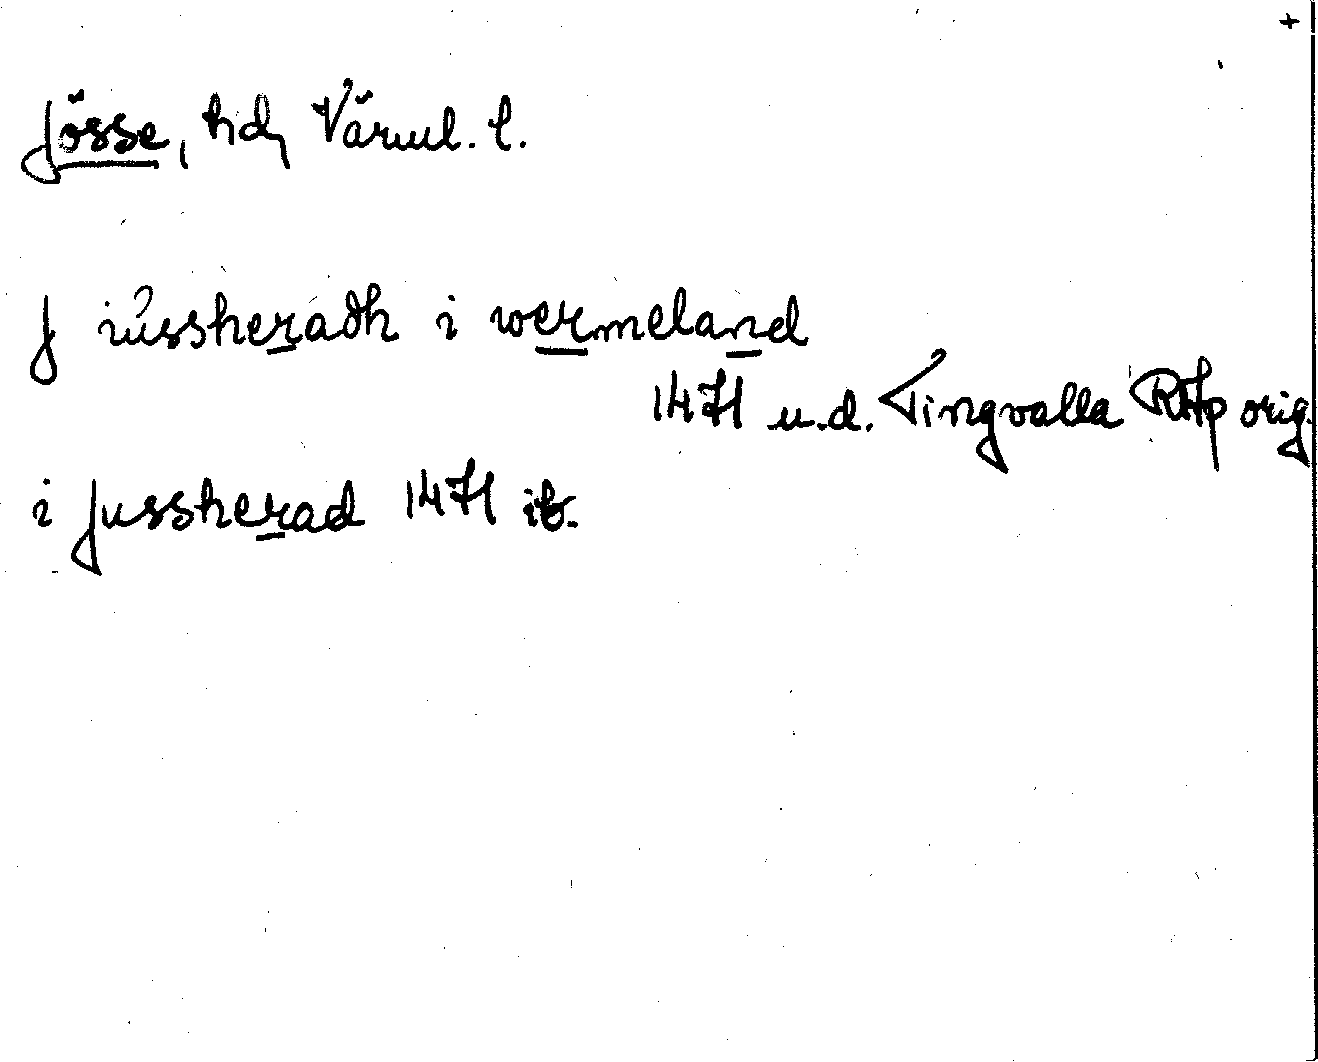 +
Jösse, hd, Värml. l.
J iússheradh i wermeland
1471 u.d. Tingvalla RAp orig.
i Jussherad 1471 ib.